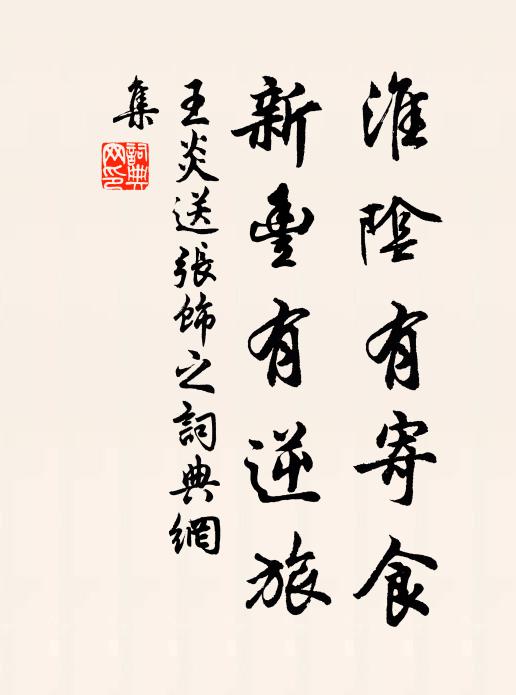 淮陰有寄食
新豐有逆旅
王炎送張飾之詞典網
集
詞典
網印